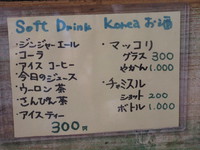 Soft Drink
・ジンジャーエール
・コーラ
・アイス コーヒー
・今日のジュース
・ウーロン茶
・さんぴん茶
・アイスティー
300円
Korea お酒
・マッコリ
グラス 300
やかん 1.000
・チャミスル
ショット 200
ボトル 1.000